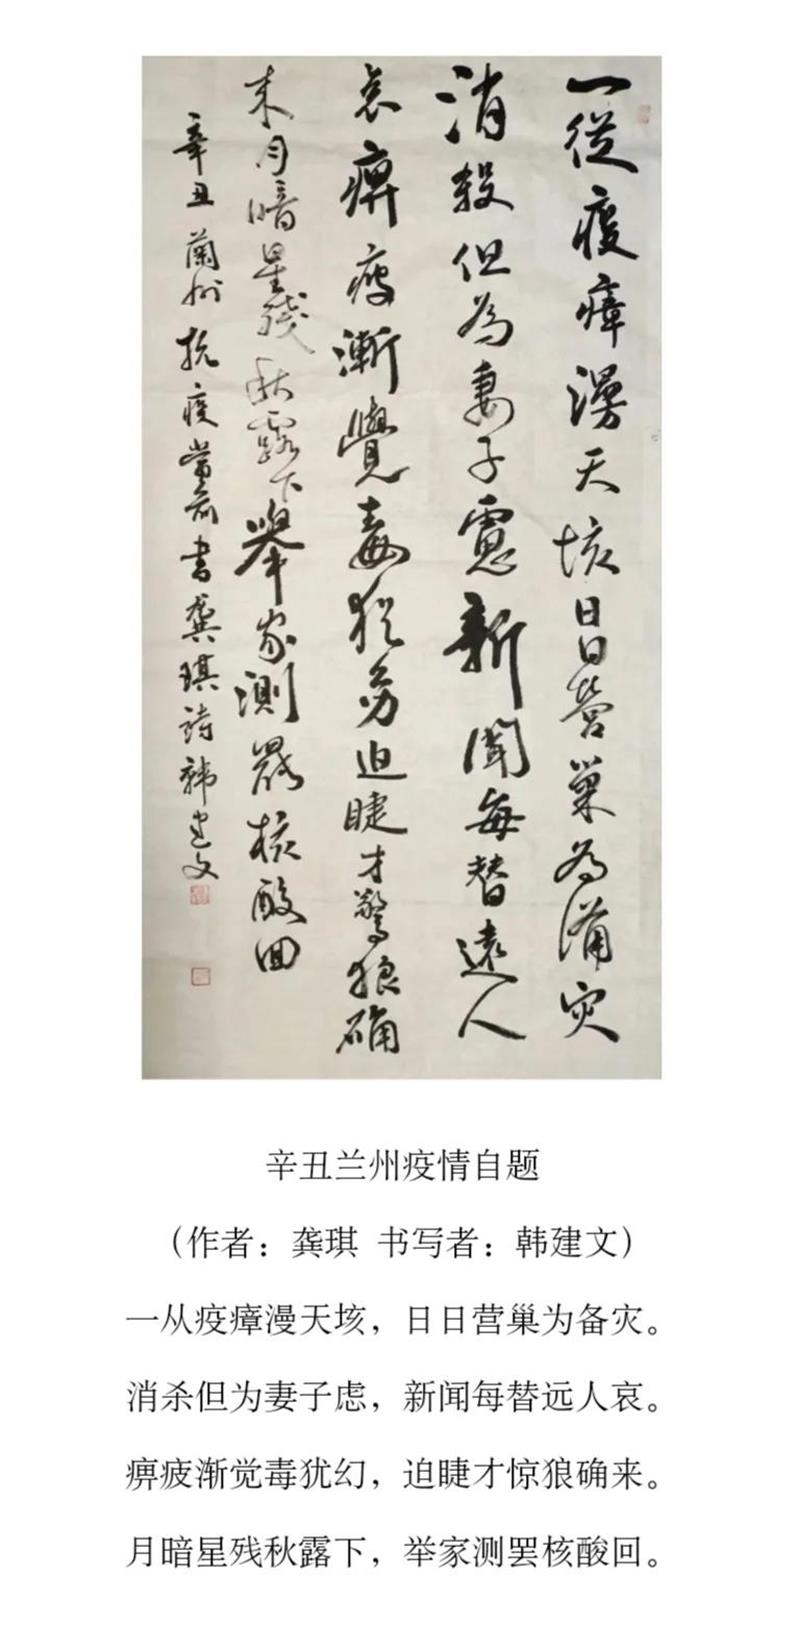 一從疫瘴漫天垓日日營巢為備灾
消殺但為妻子慮新聞每替遠人
哀痺疲漸覺毒猶幻迫睫才驚狼确
来月暗星殘秋露下舉家測罷核酸回
辛丑蘭州抗疫書龔琪詩韓建文
辛丑兰州疫情自题
（作者：龚琪 书写者：韩建文）
一从疫瘴漫天垓，日日营巢为备灾。
消杀但为妻子虑，新闻每替远人哀。
痹疲渐觉毒犹幻，迫睫才惊狼确来。
月暗星残秋露下，举家测罢核酸回。